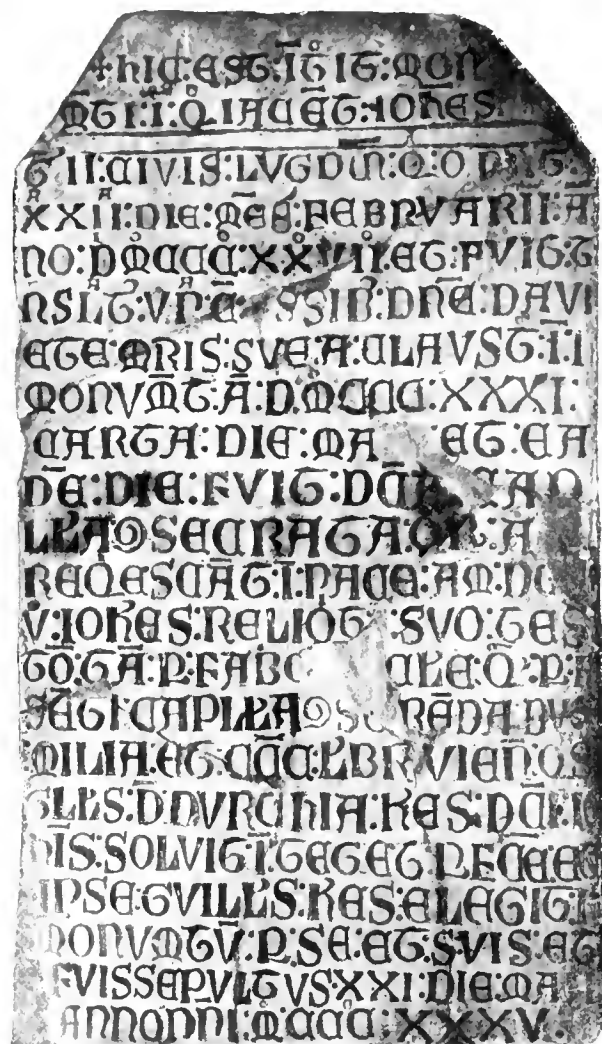 + hIC:EST:ĪTIT:MON
MTI:I:Q:IACĒT:IOHES
T II:CIVIS:LVGDVN:Q:O
XXII:DIE:MĒS:FEBRVARII:Ā
NO:D:MCCC:XXVII:ET:FVIT:T
NSLT: SSIB:DNE:DAVI
ETE:MRIS:SVE:A:CLAVST:Ī:I
MONVM̄T:Ā:D:MCCC:XXXI:
CARTA:DIE:MA ET:EA
DĒ:DIE:FVIT:DC̄A:CAP
LLA SECRATA: A
REQESCĀT:Ī:PACE:AM:DC
V:IOHES:RELIQT:SVO:TES
TO:TA:P:FABC CLE:Q:P:A
SĒTI:CAPLLA SC RĒDA:DV
:MILIA:ET:CCC:LBR:VIEN:QS
GLLS:D:DVRCHIA:HES:DC̄I:IO
HIS:SOLVIT:Ī:TETET:P.FCE:ET
IPSE:GVILLS:HES:ELEGIT:I
MONVMTV:P:SE:ET:SVIS:ET
FVIS SEPVLTVS:XXI:DIE:MA
ANNO DNI:MCCC:XXXV